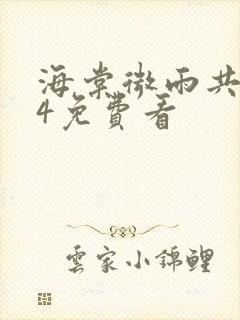 海棠微雨共
4免費看
雲家小錦鯉